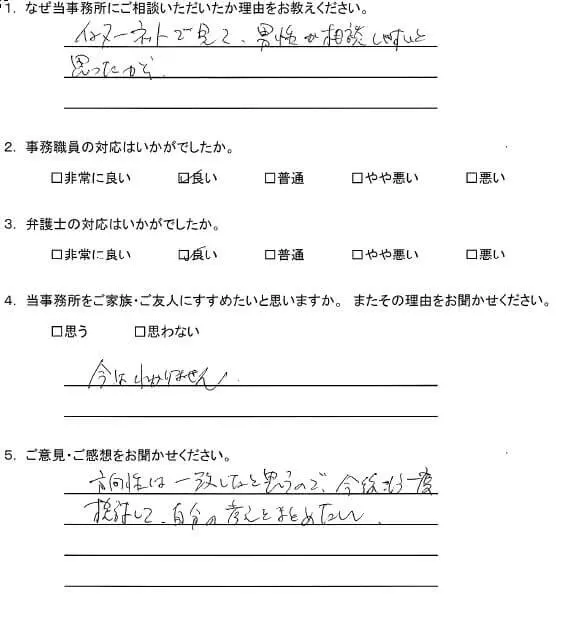 1. なぜ当事務所にご相談いただいたか理由をお教えください。
インターネットで見て、男性が相談しやすいと
思ったから
2. 事務職員の対応はいかがでしたか。
□非常に良い ☑良い □普通 □やや悪い □悪い
3. 弁護士の対応はいかがでしたか。
□非常に良い ☑良い □普通 □やや悪い □悪い
4. 当事務所をご家族・ご友人にすすめたいと思いますか。 またその理由をお聞かせください。
□思う □思わない
今はわかりません。
5. ご意見・ご感想をお聞かせください。
方向性は一致したと思うので、今後もう一度
検討して、自分の考えをまとめたい。